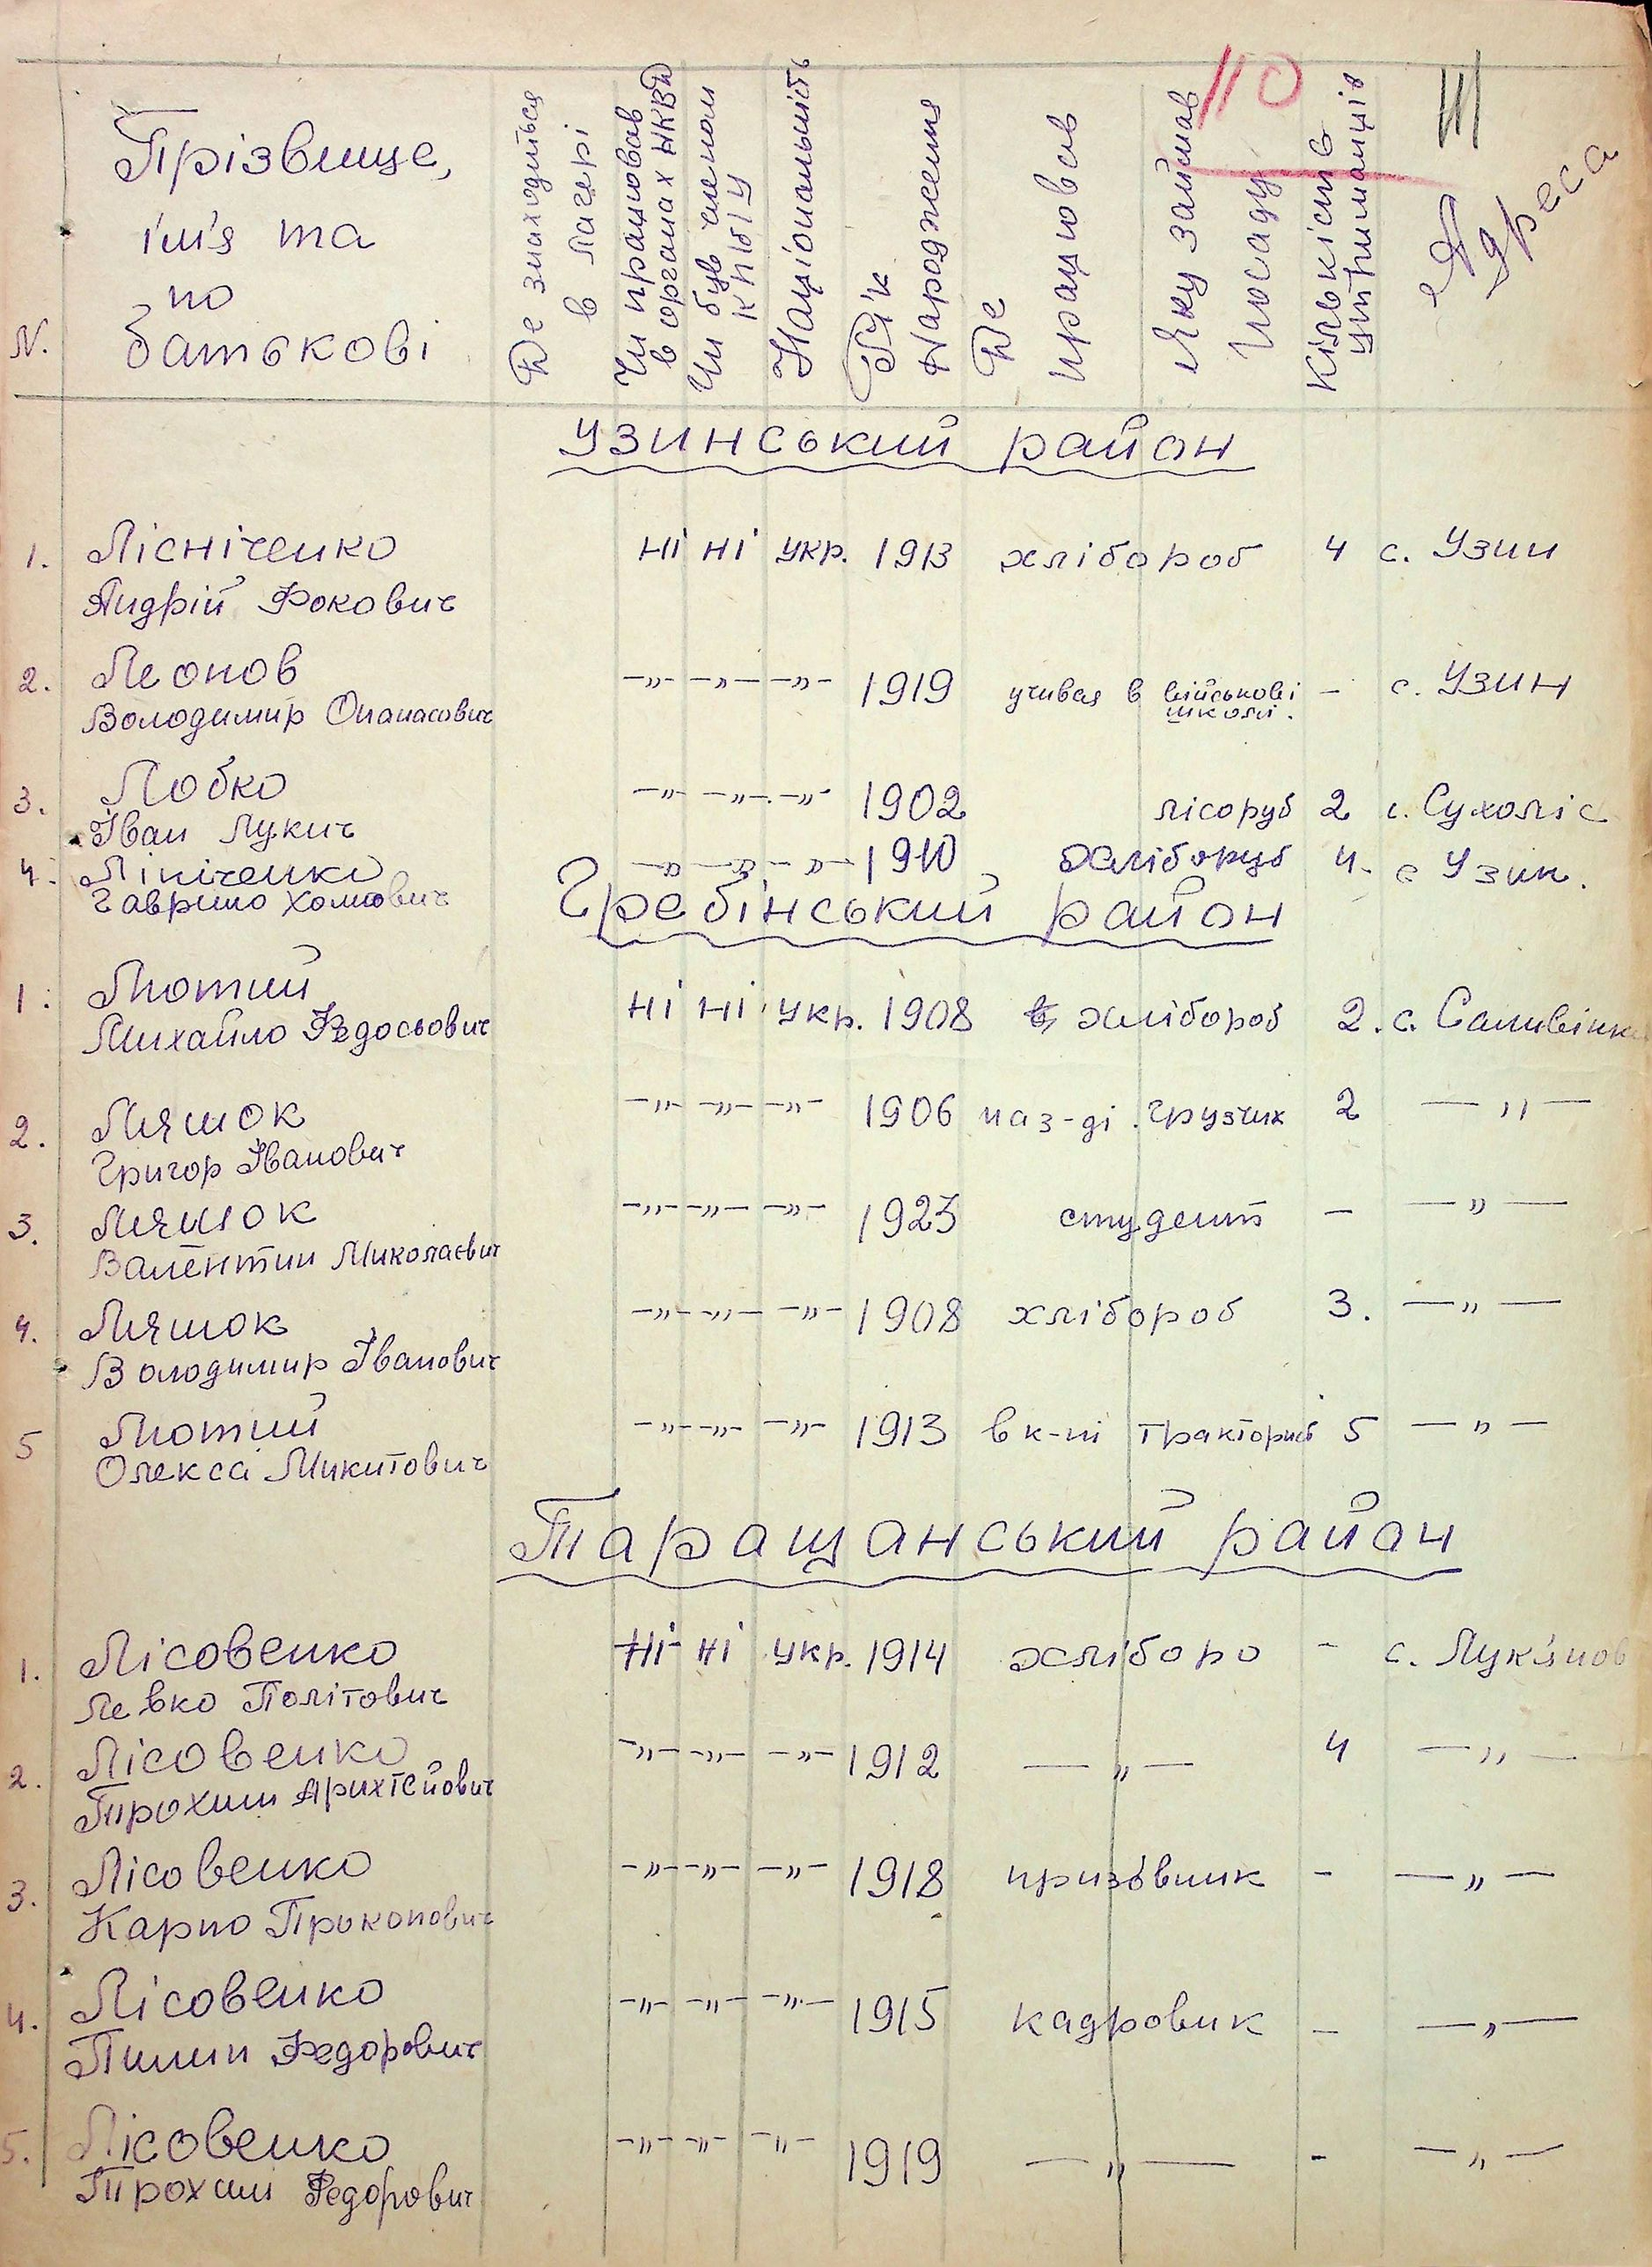 110
III
N.
Прізвище,
ім'я та
по
батькові
Де знаходиться
в лагері
Чи працював
в органах НКВД
Чи був членом
КП/б/У
Національність
Рік
Народження
Де
працював
Яку займав
посаду
Кількість
утриманців
Адреса
Узинський район
1. Лісніченко ні ні укр. 1913 хлібороб 4 с. Узин
Андрій Фокович
2. Леонов —„— —„— —„— 1919 учився в військові — с. Узин
Володимир Опанасович школі.
3. Лобко —„— —„— —„— 1902 лісоруб 2 с. Сухоліс
Іван Лукич
4. Лініченко —„— —„— —„— 1910 хлібороб 4. с Узин.
Гаврило Хомович
Гребінський район
1. Лютий ні ні укр. 1908 хлібороб 2. с. Саливінк
Михайло Федосьович
2. Ляшок —„— —„— —„— 1906 на з-ді грузчик 2 —„—
Григор Іванович
3. Ляшок —„— —„— —„— 1923 студент — —„—
Валентин Миколаєвич
4. Ляшок —„— —„— —„— 1908 хлібороб 3. —„—
Володимир Іванович
5 Лютий —„— —„— —„— 1913 в к-пі тракторист 5 —„—
Олекса Микитович
Таращанський район
1. Лісовенко ні ні укр. 1914 хліборо - с. Лук'янов
Левко Політович
2. Лісовенко —„— —„— —„— 1912 —„— 4 —„—
Трохим Архтейович
3. Лісовенко —„— —„— —„— 1918 призовник - —„—
Карпо Прокопович
4. Лісовенко —„— —„— —„— 1915 кадровик - —„—
Пилип Федорович
5. Лісовенко —„— —„— —„— 1919 —„— - —„—
Трохим Федорович